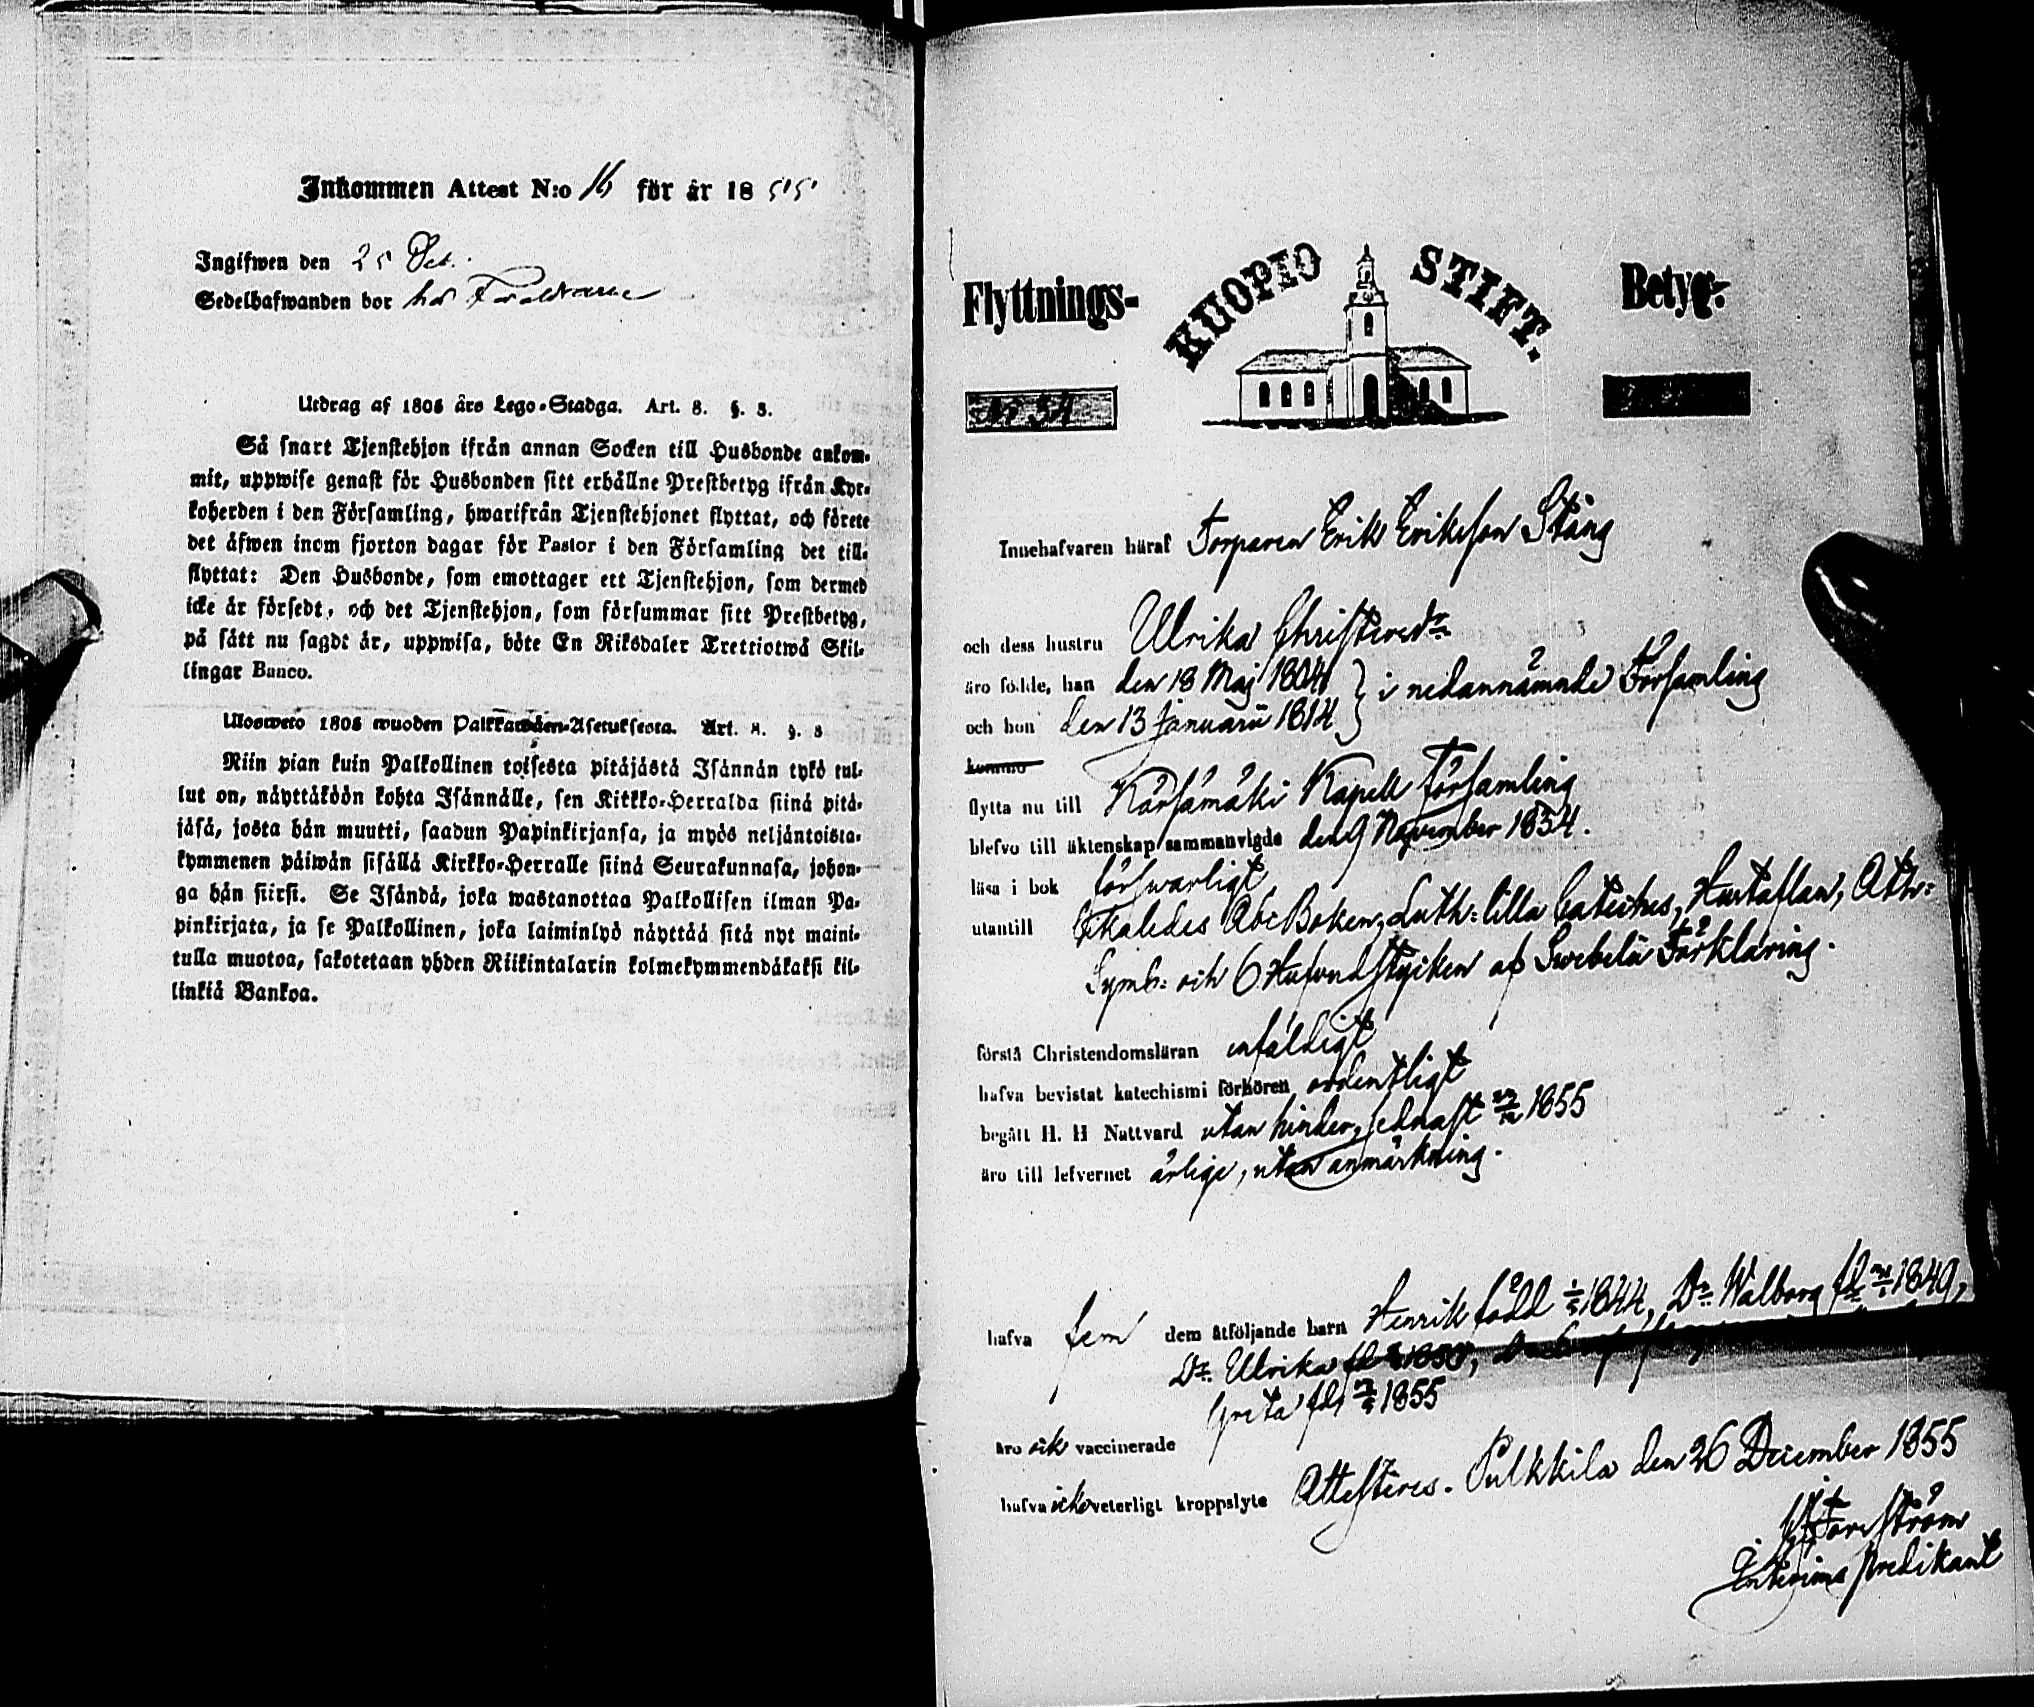 Inkommen Attest N:o 16 för år 1855
Ingifwen den 25 Oct.
Sedelhafwanden bor hos Föräldrarne
Utdrag af 1805 års Lego-Stadga. Art. 8. §. 3.
Så snart Tjenstehjon ifrån annan Socken till Husbonde ankom-
mit, uppwise genast för Husbonden sitt erhållne Prestbetyg ifrån Kyr-
koherden i den Församling, hwarifrån Tjenstehjonet flyttat, och förete
det äfwen inom fjorton dagar för Pastor i den Församling det till-
flyttat: Den Husbonde, som emottager ett Tjenstehjon, som dermed
icke är försedt, och det Tjenstehjon, som försummar sitt Prestbetyg,
på sätt nu sagdt är, uppwisa, böte En Riksdaler Trettiotwå Skil-
lingar Banco.
Ulosweto 1805 wuoden Palkkawäen-Asetuksesta. Art. 8. §. 3
Niin pian kuin Palkollinen toisesta pitäjästä Isännän tykö tul-
lut on, näyttäköön kohta Isännälle, sen Kirkko-Herralda siinä pitä-
jäsä, josta hän muutti, saadun Papinkirjansa, ja myös neljäntoista-
kymmenen päiwän sisällä Kirkko-Herralle siinä Seurakunnasa, johon-
ga hän siirsi. Se Isändä, joka wastanottaa Palkollisen ilman Pa-
pinkirjata, ja se Palkollinen, joka laiminlyö näyttää sitä nyt maini-
tulla muotoa, sakotetaan yhden Riikintalarin kolmekymmendäkaksi kil-
linkiä Bankoa.
Flyttnings- KUOPIO STIFT. Betyg.
No 34
Innehafvaren häraf Torparen Erik Eriksson Stång
och dess hustru Ulrika Christersdr
äro födde, han den 18 Maj 1804 } i nedannämnde Församling
och hon den 13 Januarii 1814
kommo
flytta nu till Kärsämäki Kapell Församling
blefvo till äktenskap sammanvigde den 9 November 1834.
läsa i bok försvarligt
utantill Skaledes Abc Boken, Luth: lilla Cateches, Hustaflan, Ath:
Symb: och 6 Hufvudstycken af Swebelii Förklaring.
förstå Christendomsläran enfaldigt
hafva bevistat katechismi förhören ordentligt
begått H. H Nattvard utan hinder, sednast 1855
äro till lefvernet ärliga, utan anmärkning.
hafva fem dem åtföljande barn Henrik född 1844, Dr Walborg fd 1849,
Dr Ulrika fd
Greta fd 1855
äro ock vaccinerade
hafva icke veterligt kroppslyte Attesteres. Pulkkila den 26 December 1855
Forsström
Interims predikant